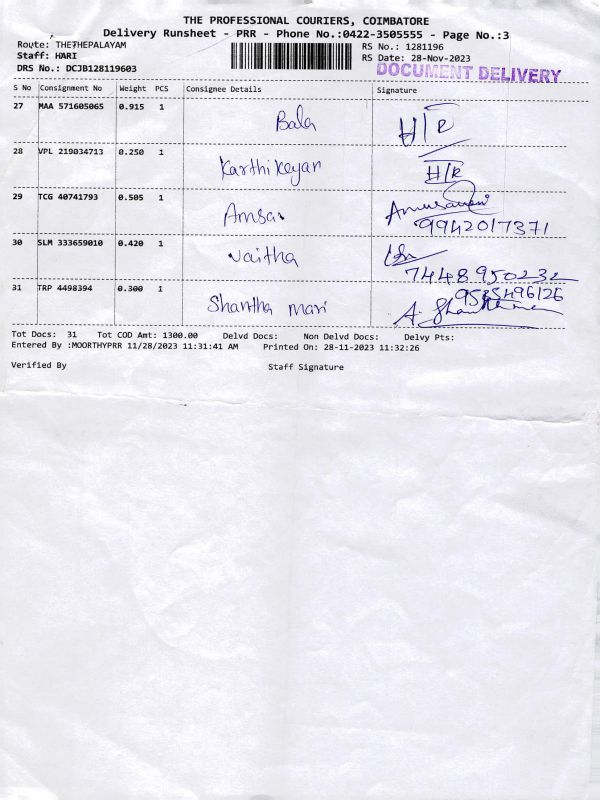 THE PROFESSIONAL COURIERS, COIMBATORE
Delivery Runsheet - PRR - Phone No.:0422-3505555 - Page No.:3
Route: THETHEPALAYAM
Staff: HARI
DRS No.: DCJB128119603
RS No.: 1281196
RS Date: 28-Nov-2023
DOCUMENT DELIVERY
S No Consignment No Weight PCS Consignee Details Signature
27 MAA 571605065 0.915 1 Bala H/R
28 VPL 219034713 0.250 1 Karthikeyan H/R
29 TCG 40741793 0.505 1 Amsa
9942017371
30 SLM 333659010 0.420 1 Vaitha
7448950232
31 TRP 4498394 0.300 1 Shantha mari
Tot Docs: 31 Tot COD Amt: 1300.00 Delvd Docs: Non Delvd Docs: Delvy Pts:
Entered By :MOORTHYPRR 11/28/2023 11:31:41 AM Printed On: 28-11-2023 11:32:26
Verified By Staff Signature